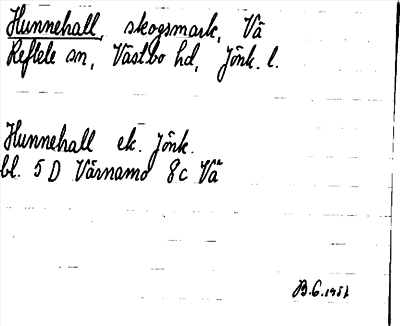 Hunnehall, skogsmark, Vä
Reftele sn, Västbo hd, Jönk. l.
Hunnehall ek. Jönk.
bl. 5 D Värnamo 8c Vä
B.G.